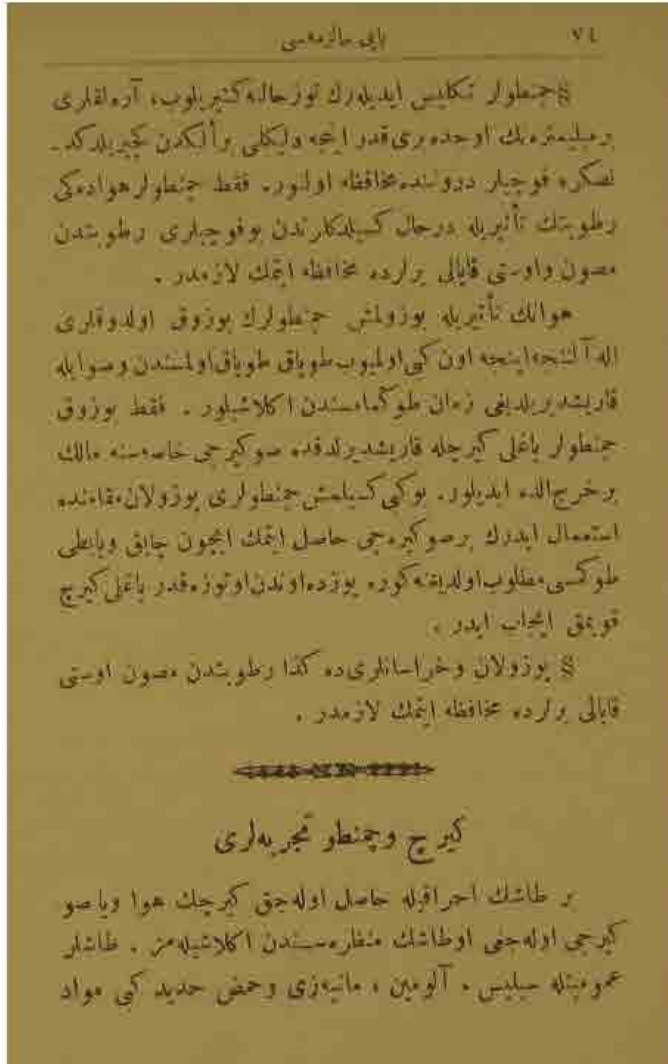 ٧٤
یاپی مالزمه‌سی
§ چمنطولر تکلیس ایدیله‌رك توز حالنه کتیریلوب، آره‌لقلری
بر میلیمتره‌نك اوچده بری قدر اینجه ولیکلی بر الکدن کچیریلدکد۔
نصکره فوچیلر دروننده محافظه اولنور. فقط چمنطولر هواده‌کی
رطوبتك تأثیریله درحال کسیلدکلرندن بو فوچیلری رطوبتدن
مصون واوستی قاپالی یرلرده محافظه ایتمك لازمدر .
هوانك تأثیریله بوزولمش چمنطولرك بوزوق اولدوقلری
اله آلنجه اینجه اون کبی اولمیوب طوپاق طوپاق اولمسندن وصو ایله
قاریشدیریلدیغی زمان طوکمامه‌سندن اکلاشیلور . فقط بوزوق
چمنطولر یاغلی کیرجله قاریشدیرلدقده صو کیرجی خاصه‌سنه مالك
بر خرج الده ایدیلور. بوکبی کسیلمش چمنطولری پوزولان مقامنده
استعمال ایدرك بر صو کیره‌جی حاصل ایتمك ایچون چابق ویا بطی
طوکمسی مطلوب اولدیغنه کوره یوزده اوندن اوتوزه قدر یاغلی کیرج
قویمق ایجاب ایدر .
§ پوزولان وخراسانلری‌ده کذا رطوبتدن مصون اوستی
قاپالی یرلرده محافظه ایتمك لازمدر .
کیرج وچمنطو تجربه‌لری
بر طاشك احراقیله حاصل اوله‌جق کیرجك هوا ویا صو
کیرجی اوله‌جغی اوطاشك منظره‌سندن اکلاشیله‌مز . طاشلر
عمومیتله سیلیس ، آلومین ، مانیه‌زی وحمض حدید کبی مواد